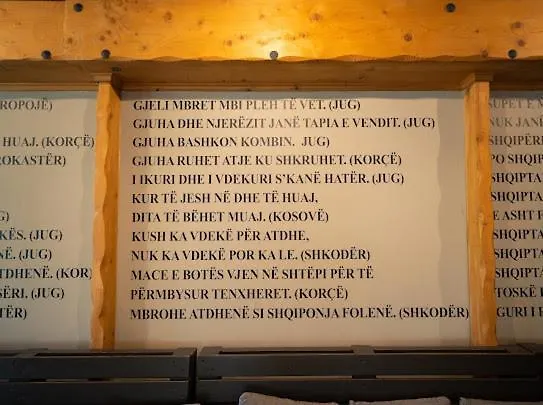 ROPOJË)
HUAJ. (KORÇË)
ROKASTËR)
G)
KËS. (JUG)
NË. (JUG)
TDHENË. (KOR)
SËRI. (JUG)
TËR)
GJELI MBRET MBI PLEH TË VET. (JUG)
GJUHA DHE NJERËZIT JANË TAPIA E VENDIT. (JUG)
GJUHA BASHKON KOMBIN. JUG)
GJUHA RUHET ATJE KU SHKRUHET. (KORÇË)
I IKURI DHE I VDEKURI S'KANË HATËR. (JUG)
KUR TË JESH NË DHE TË HUAJ,
DITA TË BËHET MUAJ. (KOSOVË)
KUSH KA VDEKË PËR ATDHE,
NUK KA VDEKË POR KA LE. (SHKODËR)
MACE E BOTËS VJEN NË SHTËPI PËR TË
PËRMBYSUR TENXHERET. (KORÇË)
MBROHE ATDHENË SI SHQIPONJA FOLENË. (SHKODËR)
SUPET E M
NUK JANË
SHQIPËRI
PO SHQIP
SHQIPTA
SHQIPTA
E ASHT F
SHQIPTA
SHQIPTA
SHQIPTA
TOSKË E
GURI I